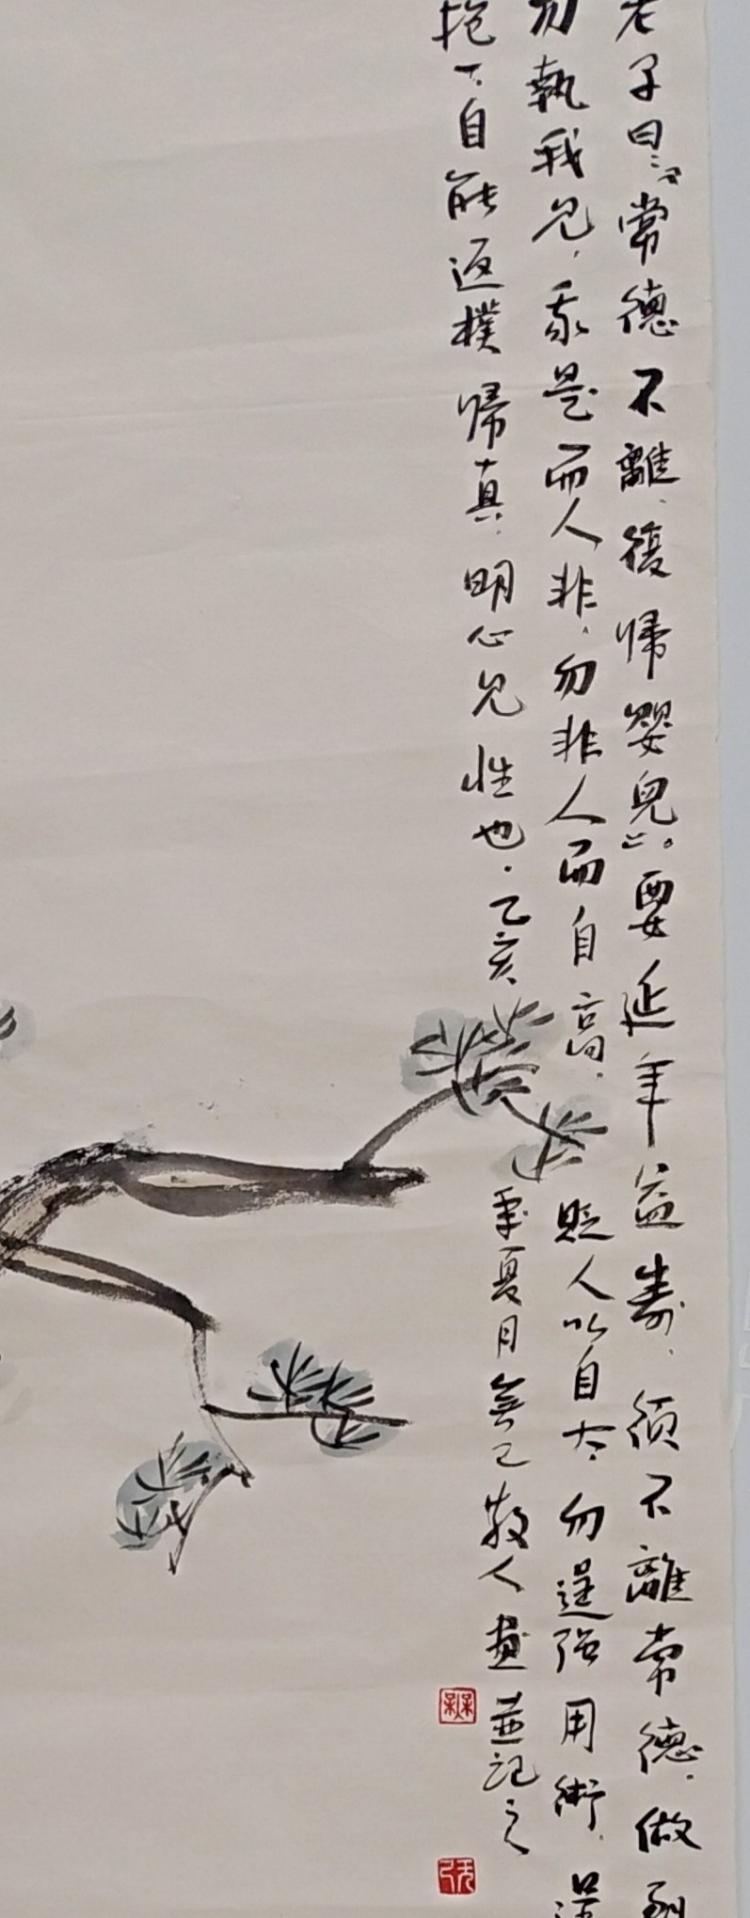 老子曰：“常德不離，復歸嬰兒”。要延年益壽，須不離常德，做到
勿執我見，我是而人非，勿非人而自高，貶人以自大，勿逞强用術，
抱一，自能返樸歸真，明心見性也。乙亥年夏月無己散人畫並記之